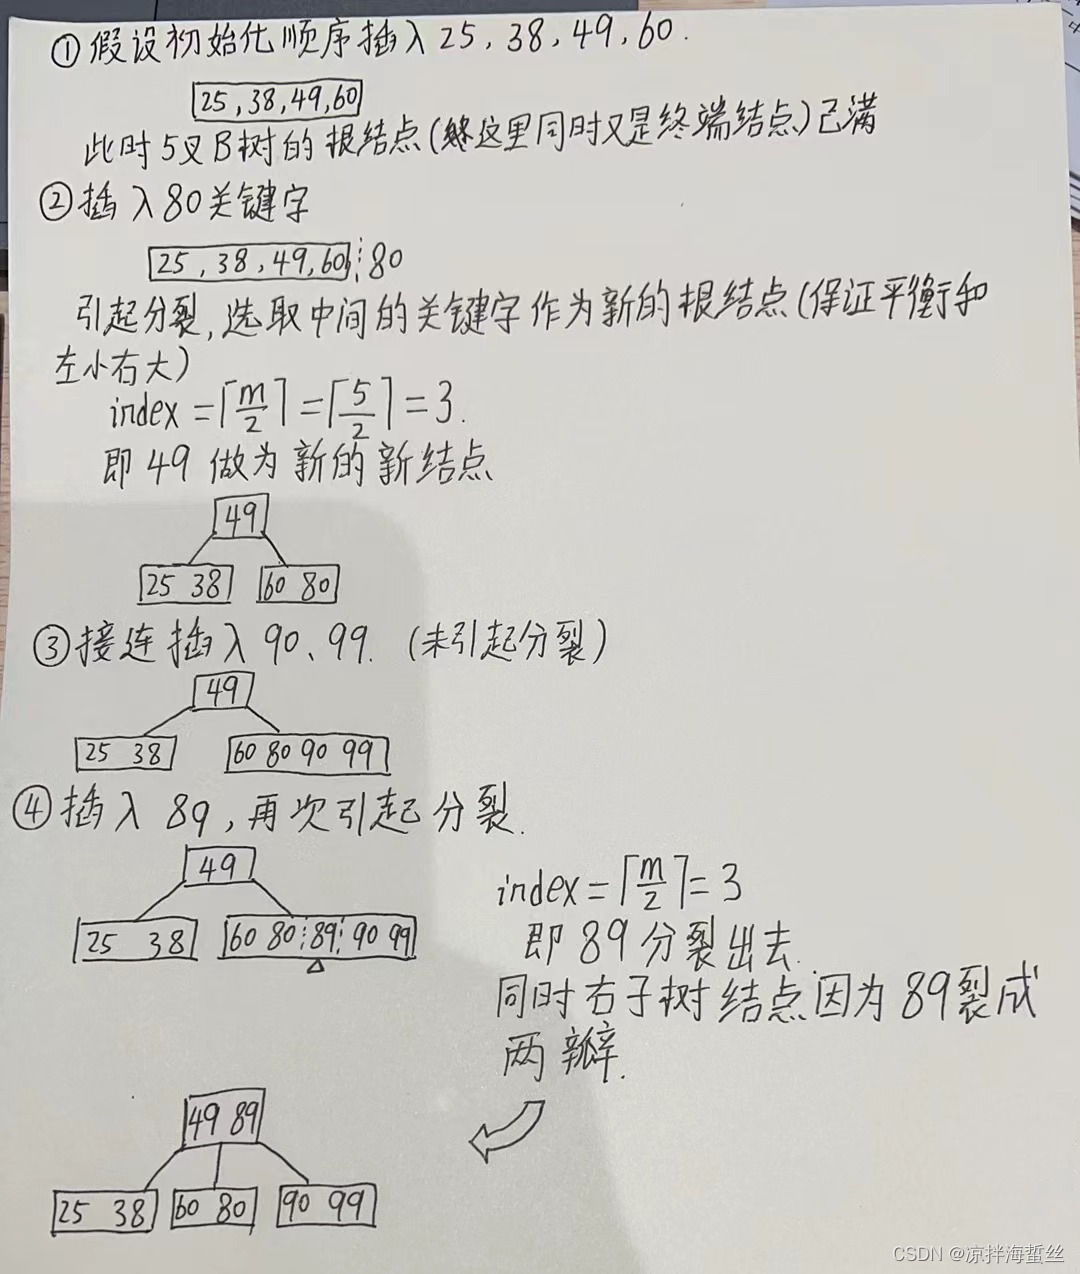 ①假设初始化顺序插入25,38,49,60.
25,38,49,60
此时5叉B树的根结点(这里同时又是终端结点)已满
②插入80关键字
25,38,49,60 80
引起分裂,选取中间的关键字作为新的根结点(保证平衡和
左小右大)
index=⌈m/2⌉=⌈5/2⌉=3.
即49做为新的新结点
49
25 38 60 80
③接连插入90、99.(未引起分裂)
49
25 38 60 80 90 99
④插入89,再次引起分裂.
49
25 38 60 80 89 90 99
index=⌈m/2⌉=3
即89分裂出去.
同时右子树结点因为89裂成
两瓣.
49 89
25 38 60 80 90 99
CSDN @凉拌海蜇丝